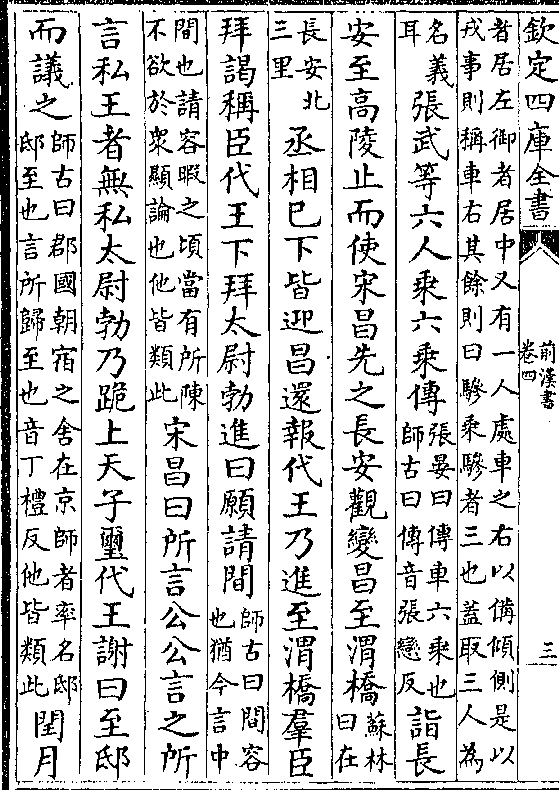 欽定四庫全書
前漢書
卷四
三
者居左御者居中又有一人處車之右以備傾側是以
戎事則稱車右其餘則曰驂乘驂者三也蓋取三人為
名義
耳
張武等六人乘六乘傳
張晏曰傳車六乘也
師古曰傳音張戀反
詣長
安至高陵止而使宋昌先之長安觀變昌至渭橋
蘇林
曰在
長安北
三里
丞相已下皆迎昌還報代王乃進至渭橋羣臣
拜謁稱臣代王下拜太尉勃進曰願請間
師古曰間容
也猶今言中
間也請容暇之頃當有所陳
不欲於衆顯論也他皆類此
宋昌曰所言公公言之所
言私王者無私太尉勃乃跪上天子璽代王謝曰至邸
而議之
師古曰郡國朝宿之舍在京師者率名邸
邸至也言所歸至也音丁禮反他皆類此
閏月